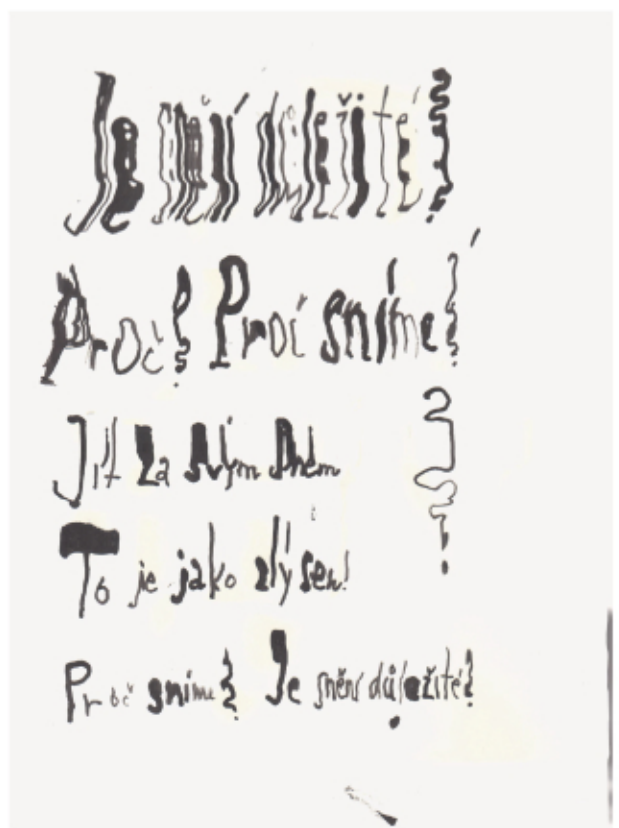 Je snění důležité?
Proč? Proč sníme?
Jít za svým snem?
To je jako zlý sen!
Proč sníme? Je snění důležité?